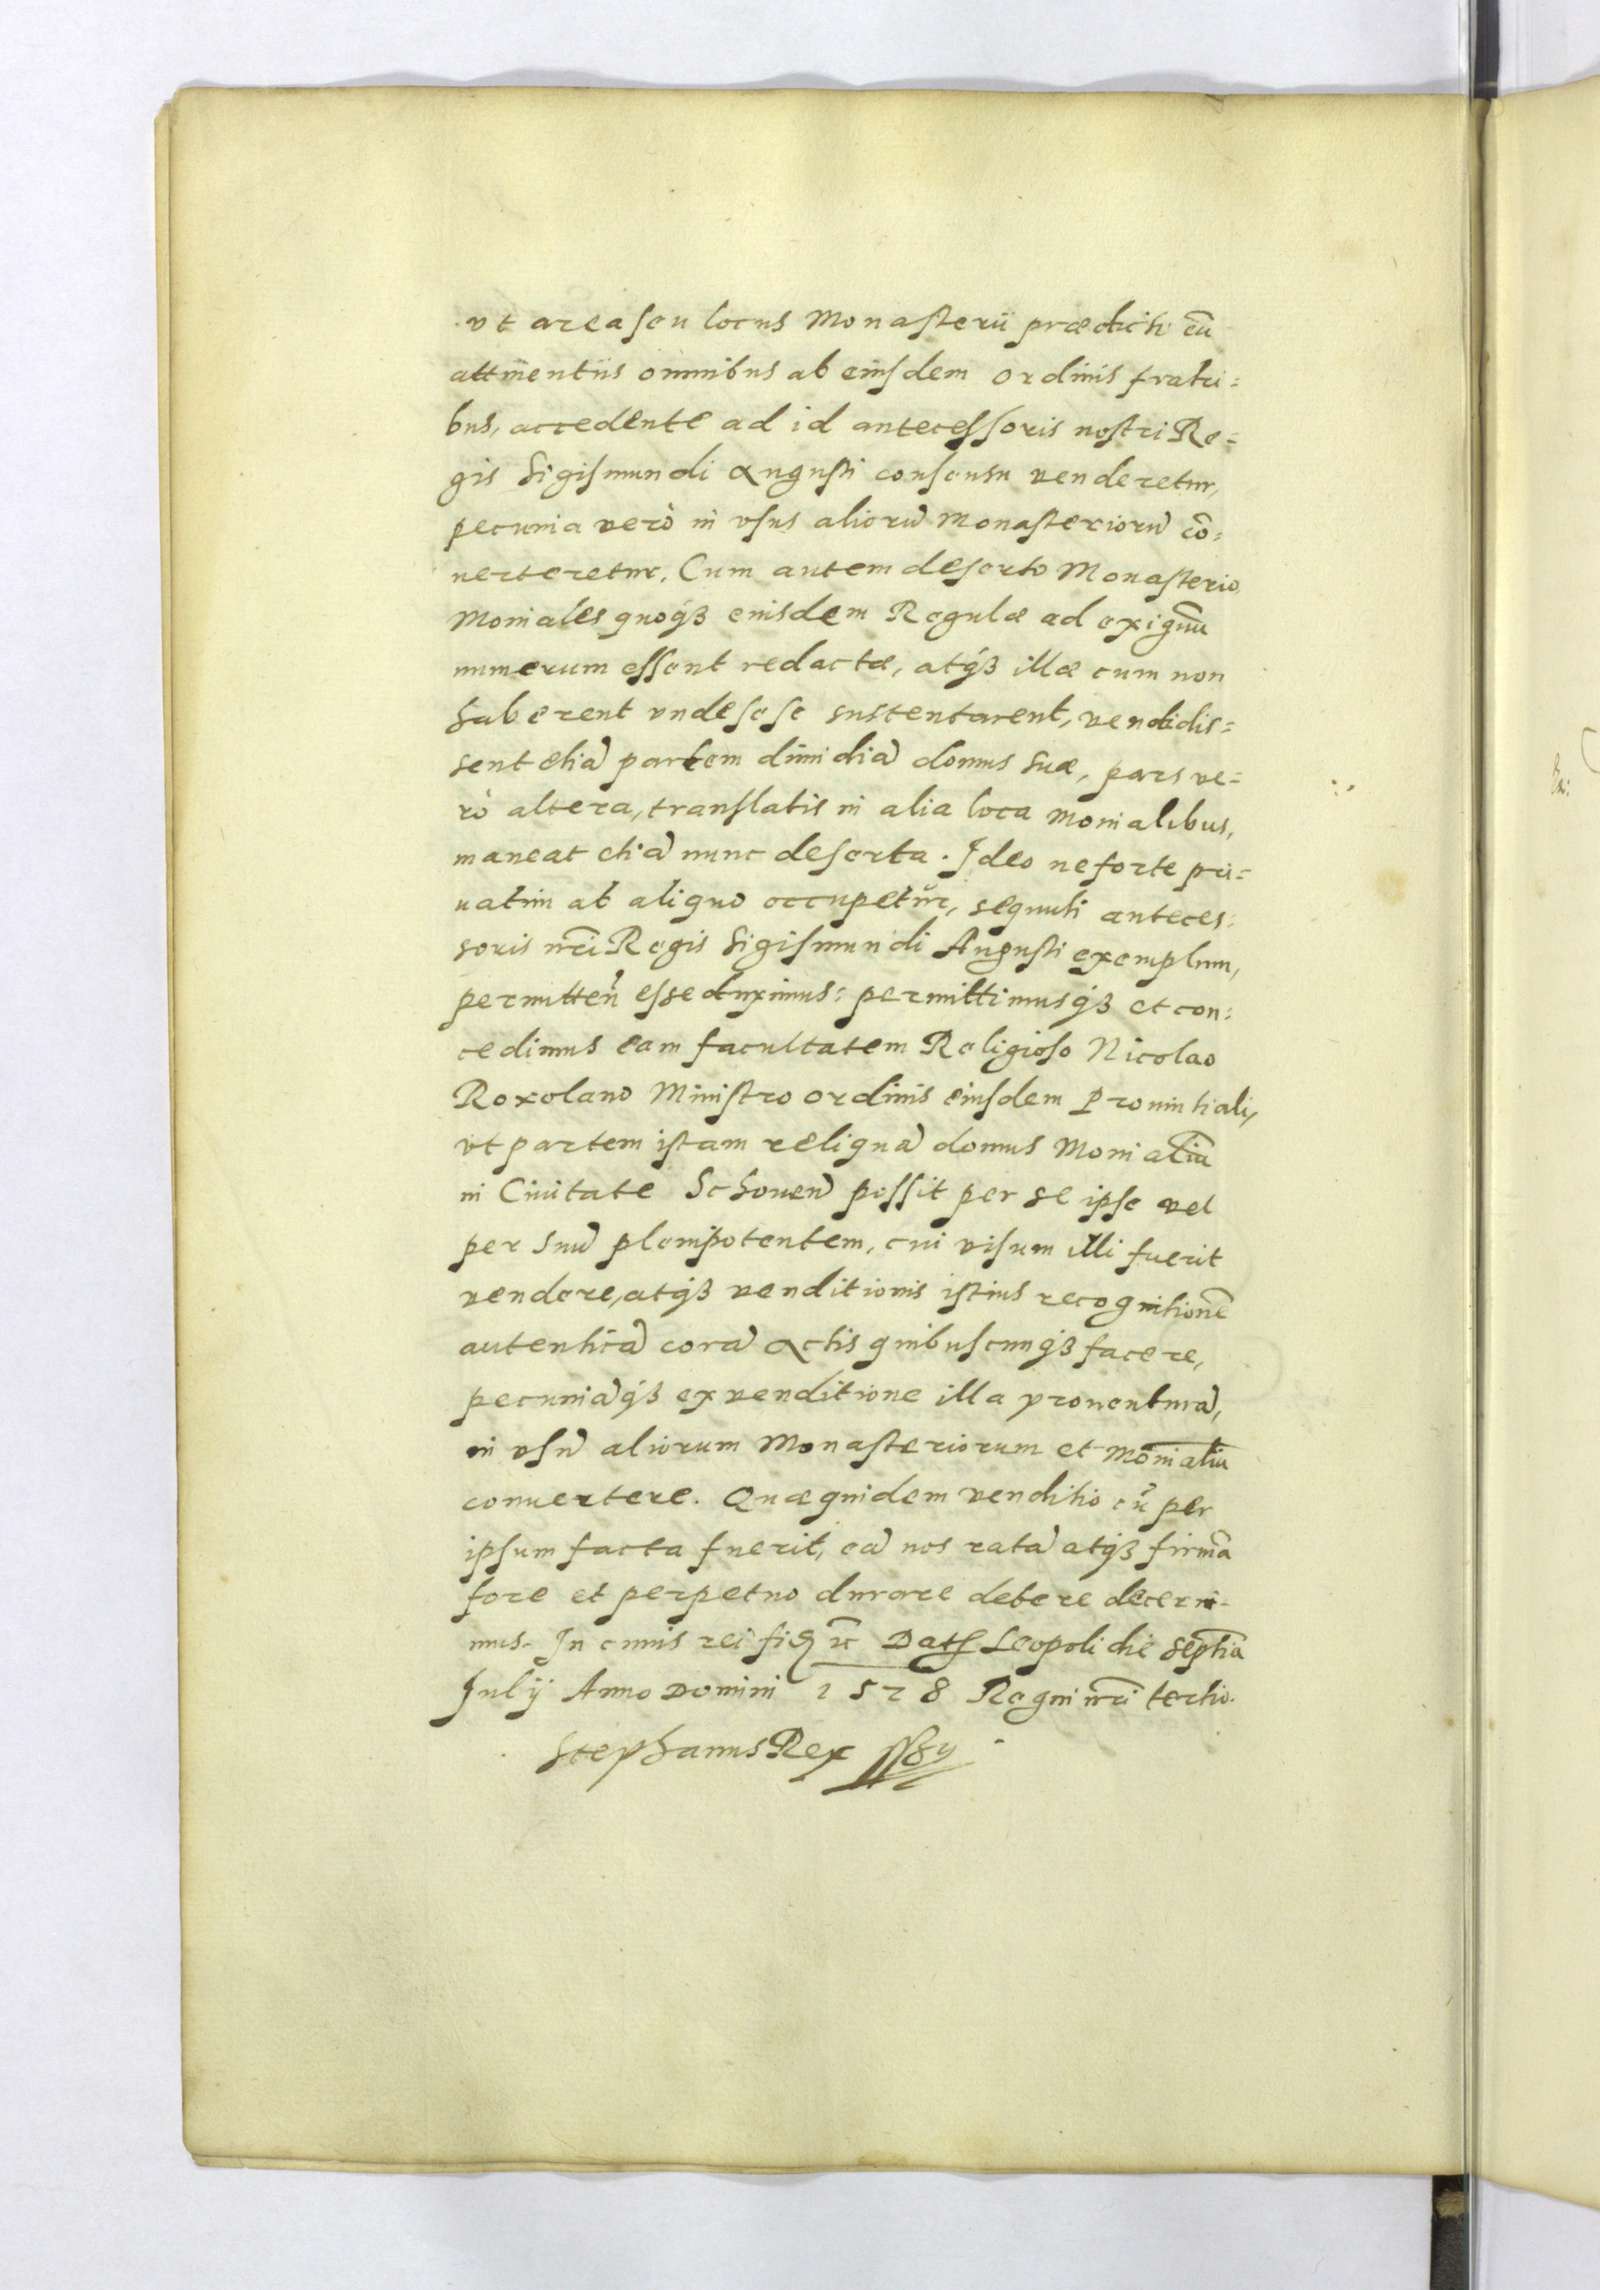 ut area seu locus Monasterii prædicti cū
attinentiis omnibus ab eiusdem ordinis fratri=
bus, accedente ad id antecessoris nostri Re=
gis Sigismundi Augusti consensu venderetur,
pecunia verò in usus aliorū Monasteriorū cō=
verteretur. Cum autem deserto Monasterio
Moniales quoqȝ eiusdem Regulæ ad exiguū
numerum essent redactæ, atqȝ illæ cum non
haberent unde sese sustentarent, vendidis=
sent etiā partem dimidiā domus suæ, pars ve=
rò altera, translatis in alia loca monialibus,
maneat etiā nunc deserta. Ideo ne forte pri=
vatim ab aliquo occupetur, sequuti anteces=
soris nr̄i Regis Sigismundi Augusti exemplum,
permitten̄ esse duximus: permittimusqȝ et con=
cedimus eam facultatem Religioso Nicolao
Roxolano Ministro ordinis eiusdem Provintiali,
ut partem istam reliquā domus Monialiū
in Civitate Schoven̄ possit per se ipse vel
per suū plenipotentem, cui visum illi fuerit
vendere, atqȝ venditionis istius recognitionē
autenticā corā Actis quibuscunqȝ facere,
pecuniāqȝ ex venditione illa proventurā,
in usū aliorum Monasteriorum et Monialiū
convertere. Quæquidem venditio cū per
ipsum facta fuerit, eā nos ratā atqȝ firmā
fore et perpetuo durare debere decerni=
mus. In cuius rei fid ꝛc Dat Leopoli die septīa
Julij Anno Domini 1578 Regni nr̄i tertio.
Stephanus Rex sst